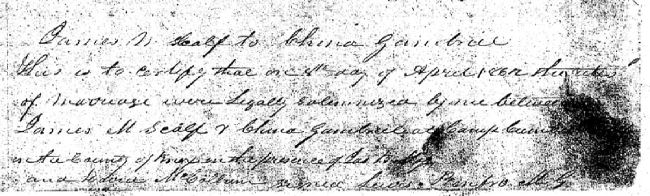 James M Scalf to China Gambrel
This is to certify that on 4th day of April 1862 the rites
of marriage were legally solemnized by me between
James M Scalf & China Gambrel at Camp
in the County of Knox in the presence of
and signed Lewis M G